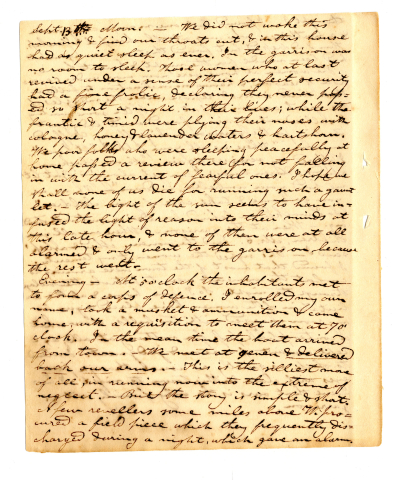 Sept. 13th Morn. — We did not wake this
morning & find our throats cut, & in this house
had as quiet sleep as ever. In the garrison was
no room to sleep. Those women who at last
revived under a sense of their perfect security
had a fine frolic, declaring they never pass-
ed so a night in their lives; while the
frantic & timid were plying their noses with
cologne, honey & lavender waters & hartshorn.
We poor folks who were sleeping peacefully at
home passed a review there for not falling
in with the current of fearful ones. I hope we
shall none of us die for running such a gaunt
let. — The light of the sun seems to have in-
fused the light of reason into their minds at
this late hour, & none of them were at all
alarmed & only went to the garrison, because
the rest went. —
Evening — At 5 o'clock the inhabitants met
to form a corps of defence. I enrolled my own
name, took a musket & ammunition & came
home, with a requisition to meet them at 7 o'
clock. In the mean time the boat arrived
from town. — We meet at seven & delivered
back our arms — This is the silliest move
of all in running now into the extreme of
neglect. — But the story is simple & short.
A few revellers some miles above pro-
cured a field piece which they frequently dis-
charged during a night, which gave an alarm